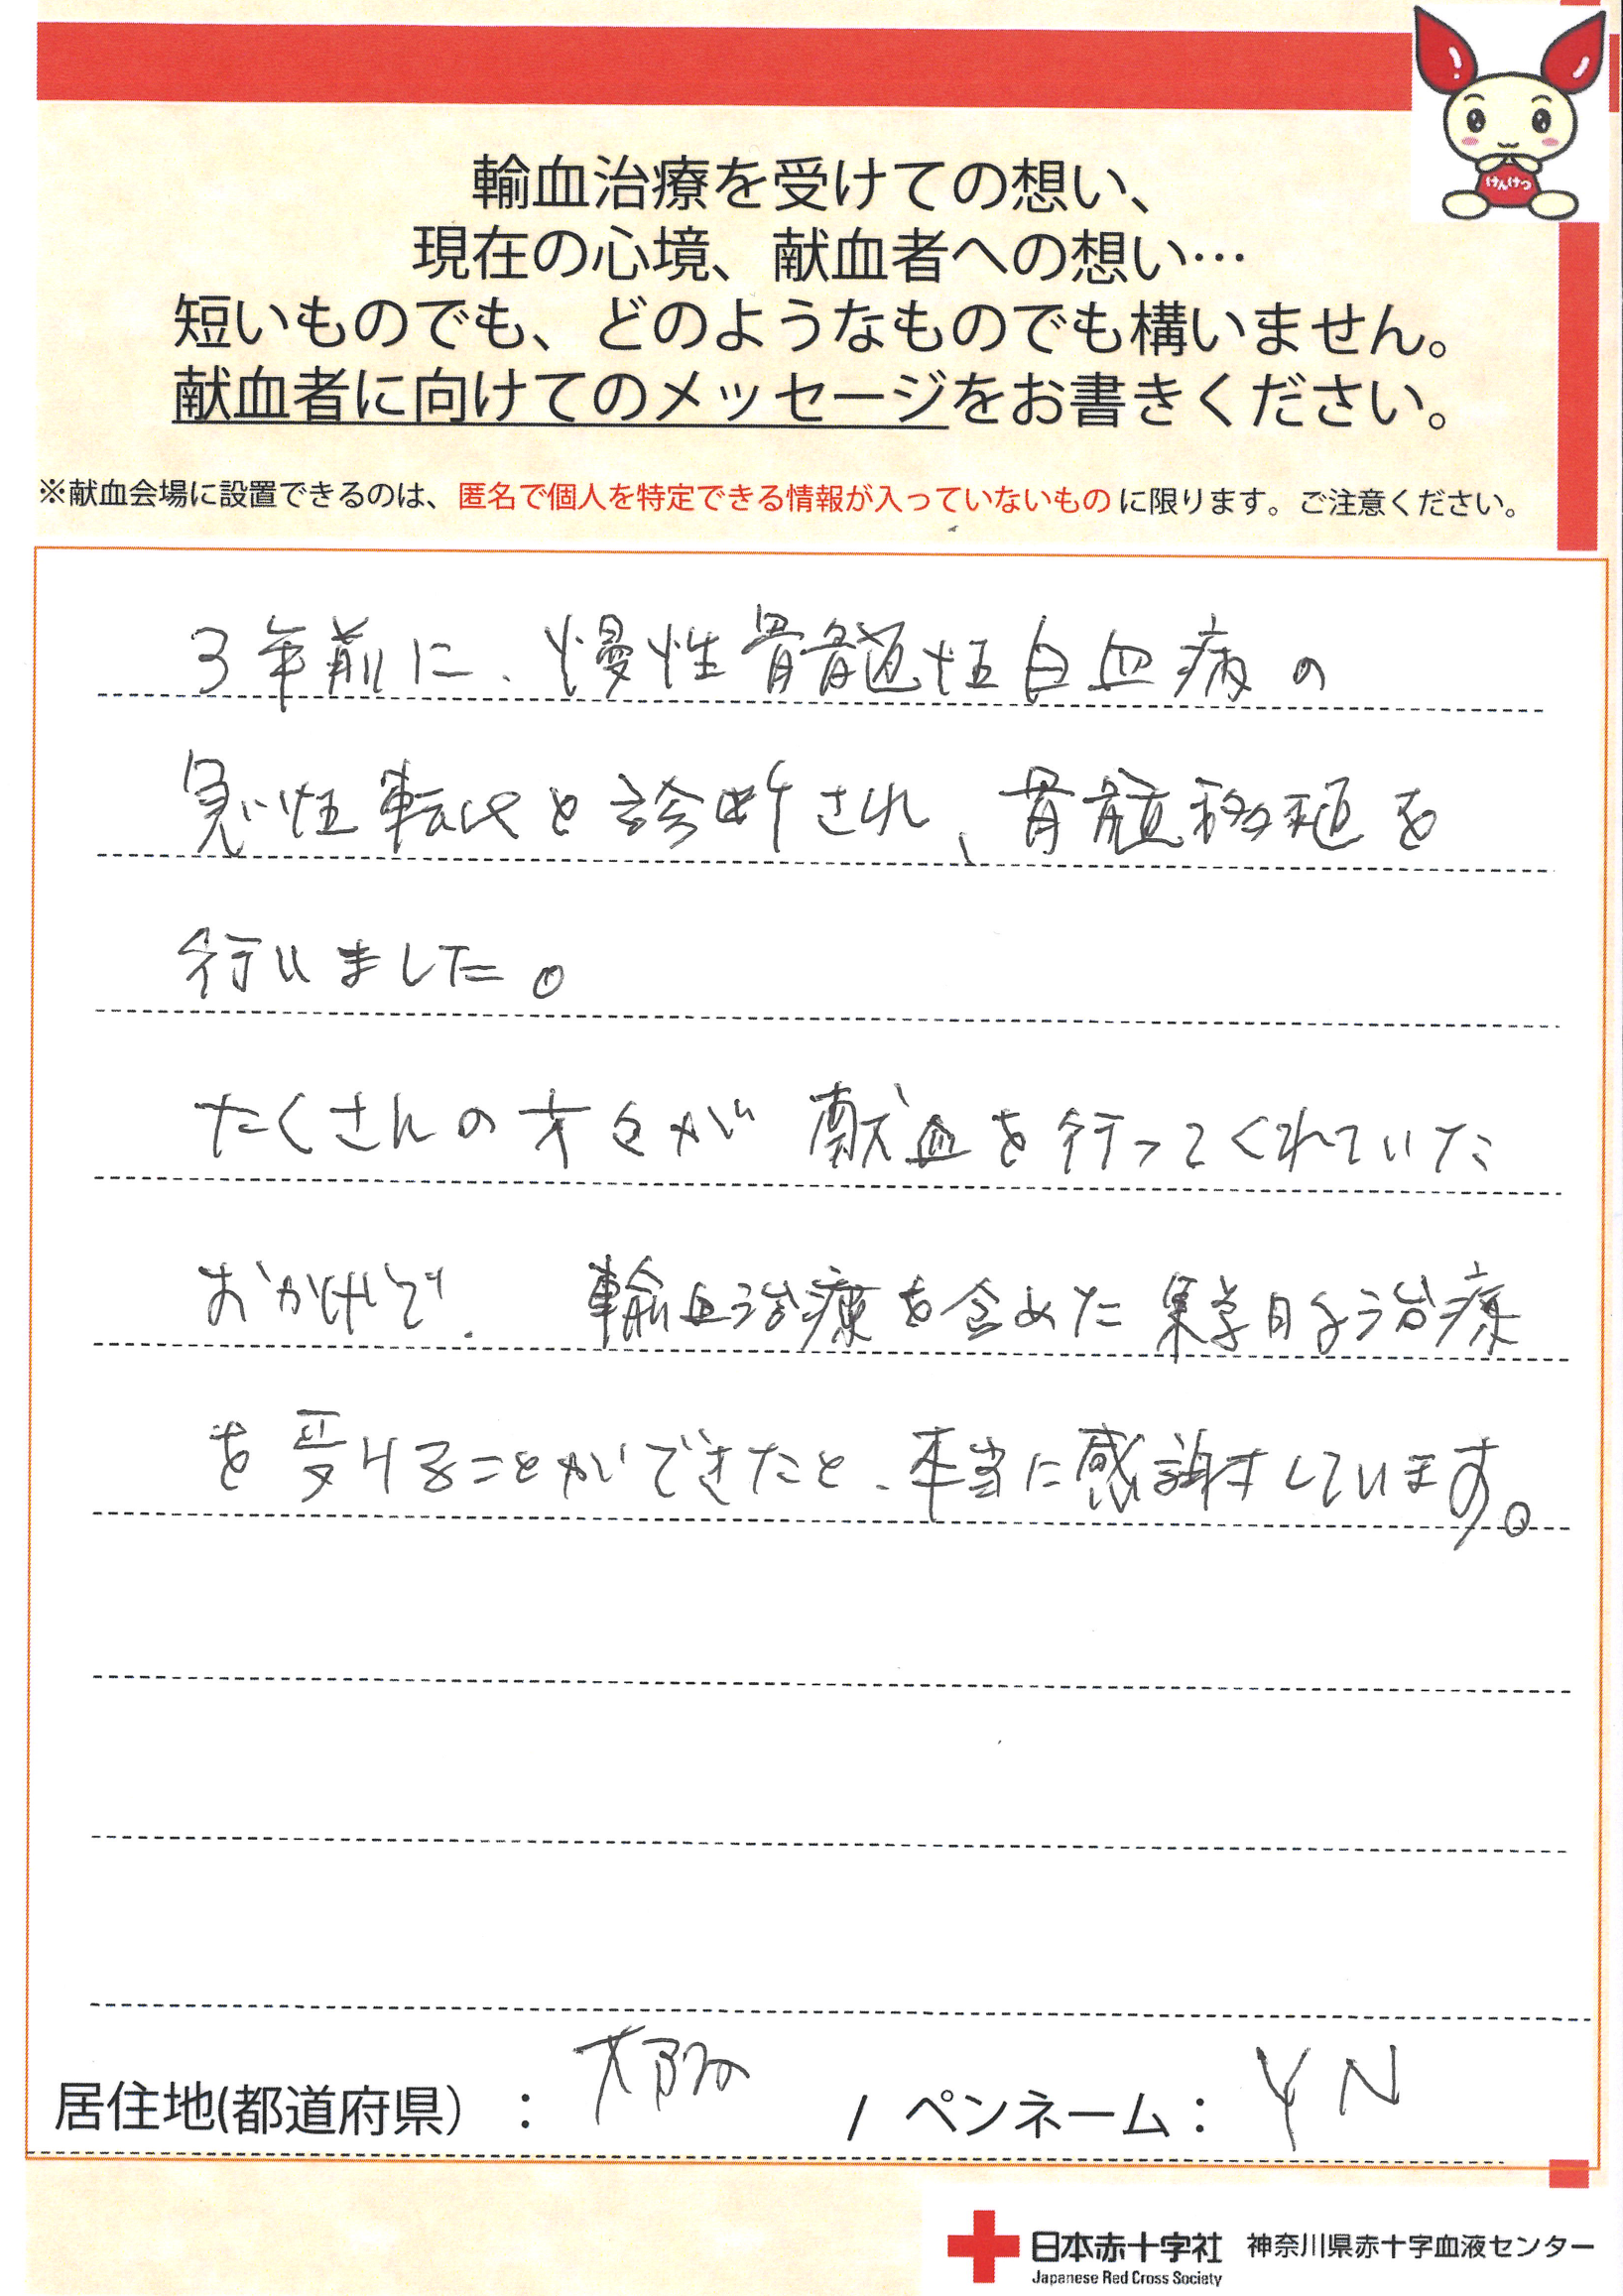 けんけつ
輸血治療を受けての想い、
現在の心境、献血者への想い…
短いものでも、どのようなものでも構いません。
献血者に向けてのメッセージをお書きください。
※献血会場に設置できるのは、匿名で個人を特定できる情報が入っていないものに限ります。ご注意ください。
3年前に、慢性骨髄性白血病の
急性転化と診断され、骨髄移植を
行いました。
たくさんの方々が献血を行ってくれていた
おかげで、輸血治療を含めた集学的治療
を受けることができたと、本当に感謝しています。
居住地(都道府県)：大阪 / ペンネーム：YN
日本赤十字社 神奈川県赤十字血液センター
Japanese Red Cross Society